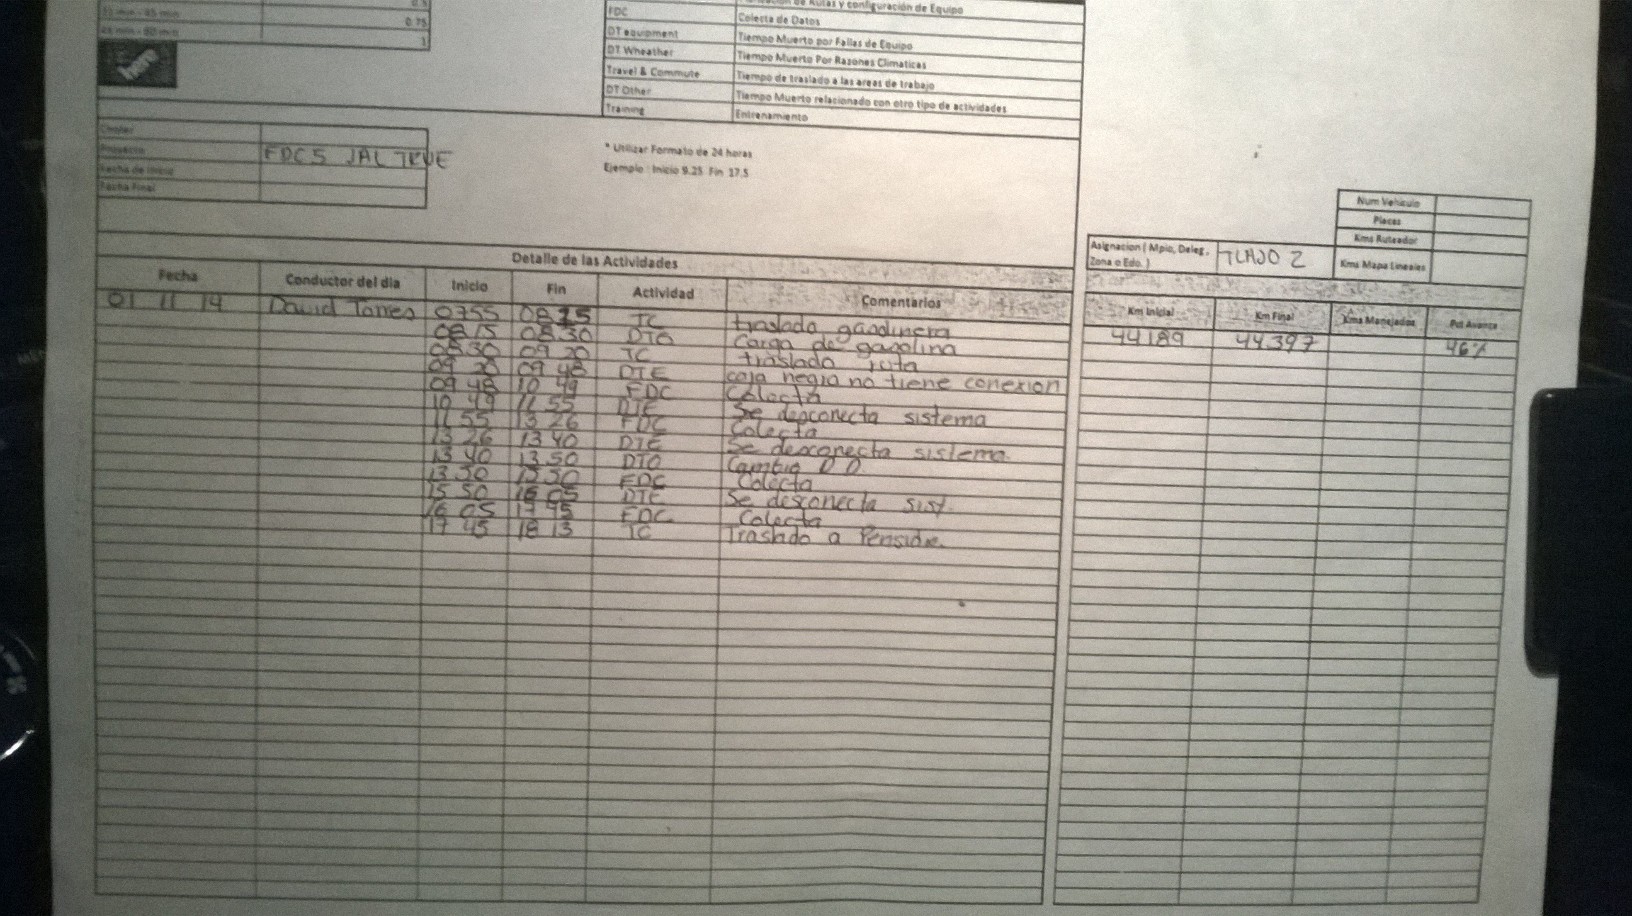 0.5
31 min - 45 min 0.75
46 min - 60 min 1
de Rutas y configuración de Equipo
FDC Colecta de Datos
DT equipment Tiempo Muerto por Fallas de Equipo
DT Wheather Tiempo Muerto Por Razones Climaticas
Travel & Commute Tiempo de traslado a las areas de trabajo
DT Other Tiempo Muerto relacionado con otro tipo de actividades
Training Entrenamiento
here
Chofer
Proyecto FDCS JAL TRUE
Fecha de Inicio
Fecha Final
* Utilizar Formato de 24 horas
Ejemplo : Inicio 9.25 Fin 17.5
Num Vehiculo
Placas
Kms Ruteador
Kms Mapa Lineales
Asignacion ( Mpio, Deleg, Zona o Edo. ) TLAJO 2
Detalle de las Actividades
Fecha Conductor del dia Inicio Fin Actividad Comentarios Km Inicial Km Final Kms Manejados Pct Avance
01 11 14 David Torres 0755 0815 TC traslado gasolinera 44189 44397 46%
0815 0830 DTO Carga de gasolina
0830 09 20 TC traslado ruta
09 20 09 48 DTE caja negra no tiene conexion
09 48 10 49 FDC Colecta
10 49 11 55 DTE Se desconecta sistema
11 55 13 26 FDC Colecta
13 26 13 40 DTE Se desconecta sistema.
13 40 13 50 DTO Cambio D.D.
13 50 15 50 FDC Colecta
15 50 16 05 DTE Se desconecta sist.
16 05 17 45 FDC Colecta
17 45 18 13 TC Traslado a Pension.